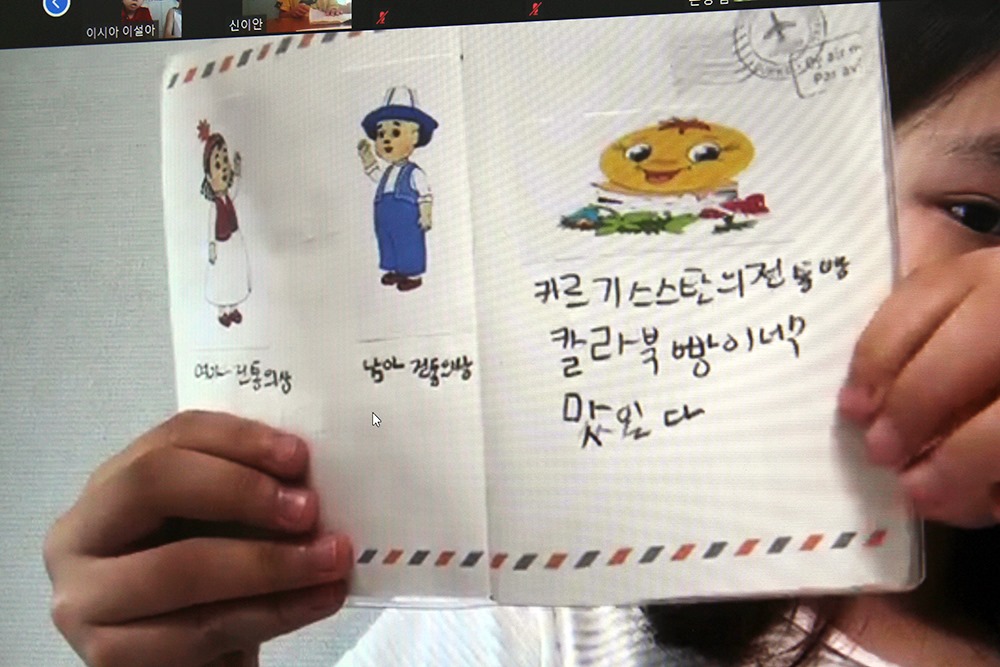 이시아 이설아
신이안
By air m
Par av
여아 전통의상
남아 전통의상
키르기스스탄의전통빵
칼라북 빵이너무
맛있다